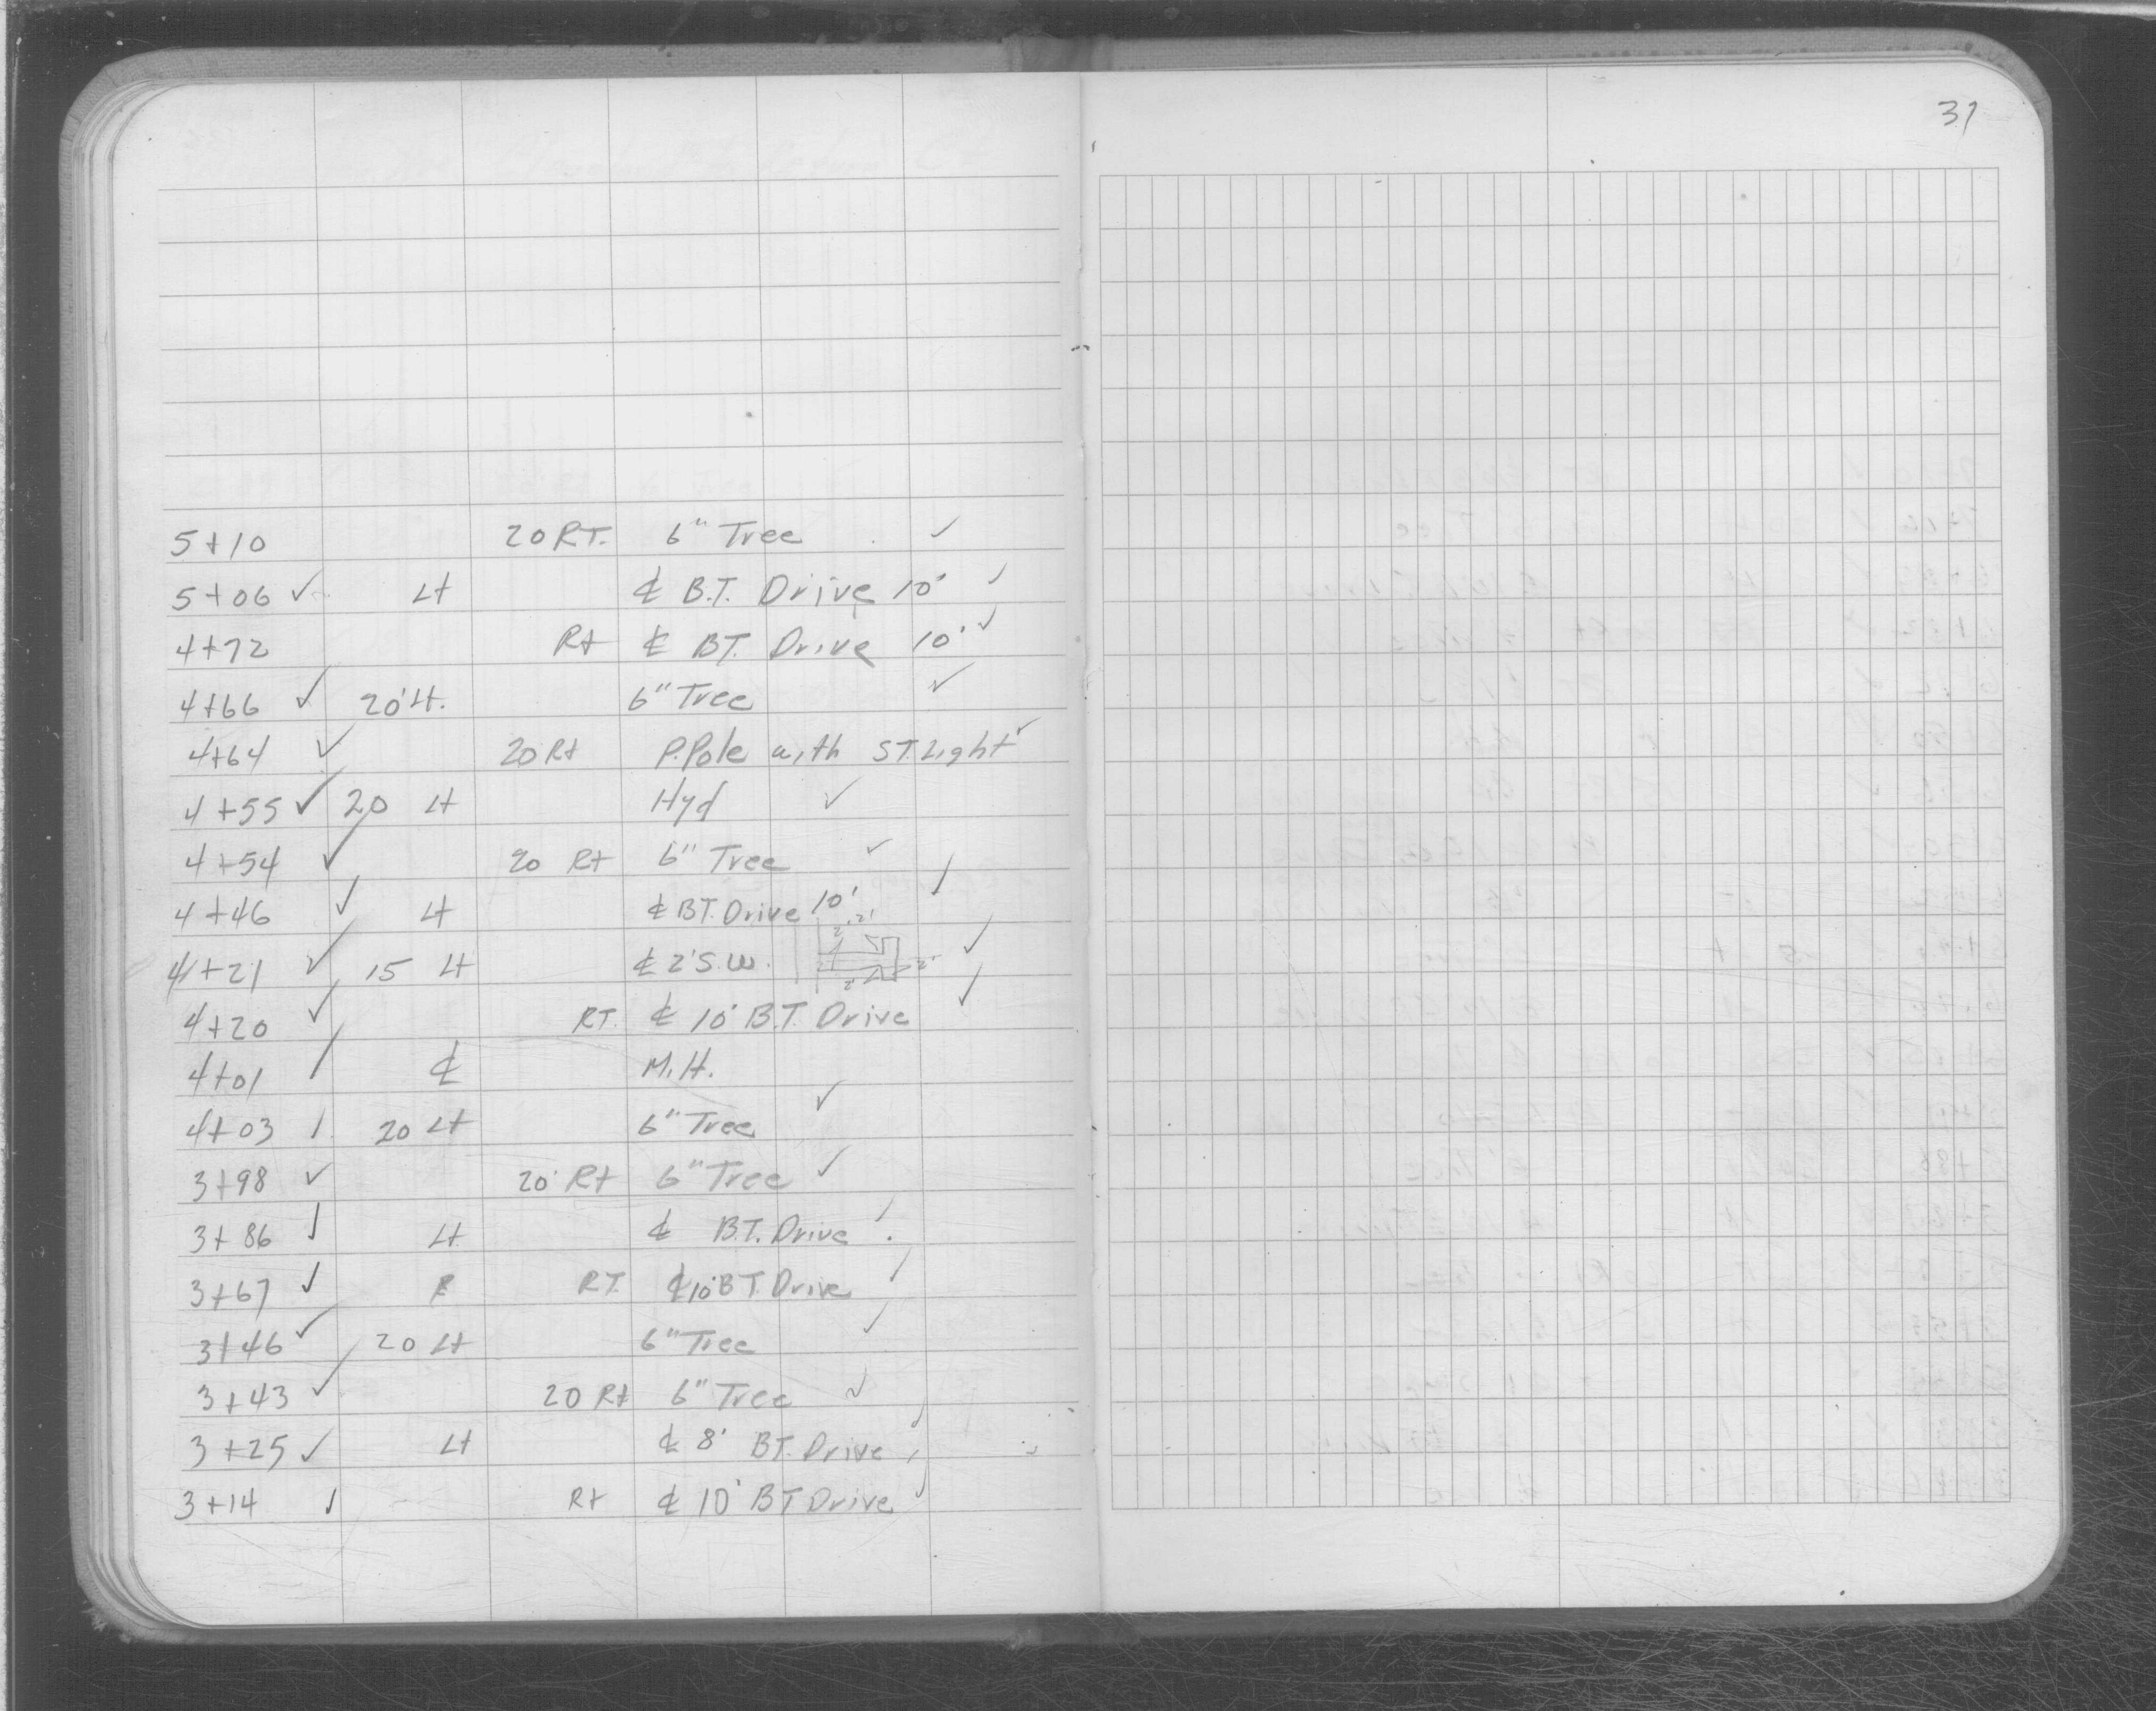 31
5+10 20 RT. 6" Tree ✓
5+06 ✓ Lt ℄ B.T. Drive 10' ✓
4+72 Rt ℄ BT. Drive 10' ✓
4+66 ✓ 20' Lt. 6" Tree ✓
4+64 ✓ 20 Rt P.Pole with ST. Light ✓
4+55 ✓ 20 Lt Hyd ✓
4+54 ✓ 20 Rt 6" Tree ✓
4+46 ✓ Lt ℄ BT. Drive 10' ✓
4+21 ✓ 15 Lt ℄ 2' S.W. 2' 2' 2' 2' ✓
4+20 ✓ RT. ℄ 10' B.T. Drive ✓
4+01 ✓ ℄ M.H.
4+03 ✓ 20 Lt 6" Tree ✓
3+98 ✓ 20' Rt 6" Tree ✓
3+86 ✓ Lt ℄ B.T. Drive ✓
3+67 ✓ RT. ℄ 10' BT. Drive ✓
3+46 ✓ 20 Lt 6" Tree ✓
3+43 ✓ 20 Rt 6" Tree ✓
3+25 ✓ Lt ℄ 8' BT. Drive ✓
3+14 ✓ Rt ℄ 10' BT Drive ✓